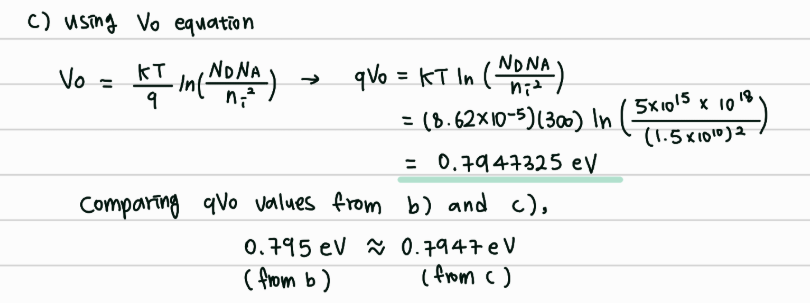 c) using Vo equation
Vo = kT/q ln(NDNA/ni²) → qVo = KT ln (NDNA/ni²)
= (8.62×10-5)(300) ln (5×10¹⁵ × 10¹⁸/(1.5×10¹⁰)²)
= 0.7947325 eV
Comparing qVo values from b) and c),
0.795 eV ≈ 0.7947 eV
(from b) (from c)